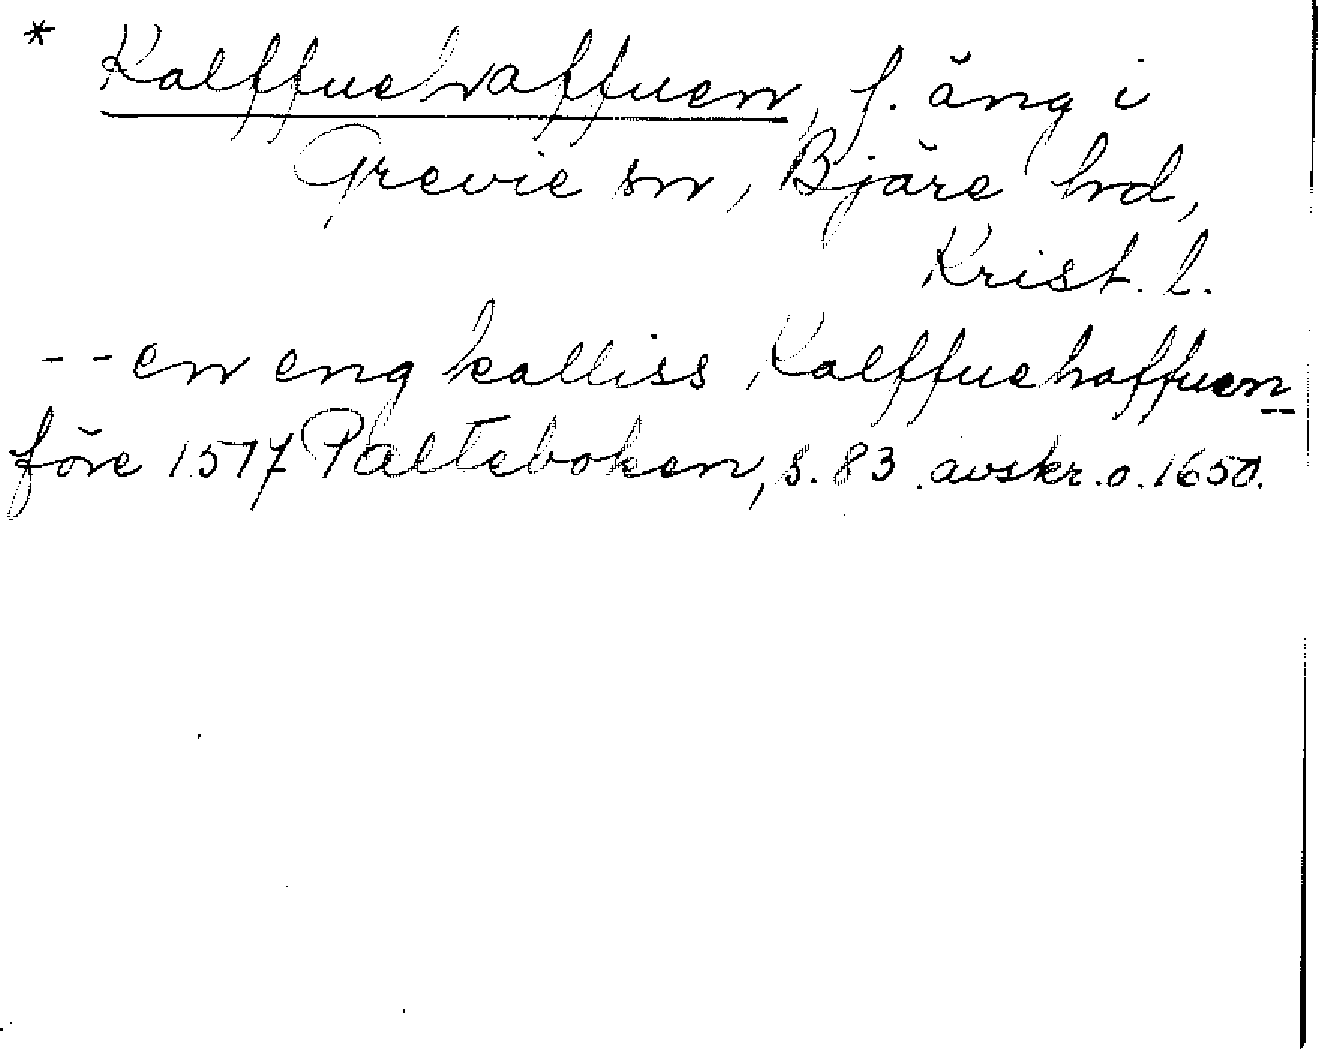 * Kalffuehaffuen, f. äng i
Grevie sn, Bjäre hd,
Krist. l.
-- en eng kalliss Kalffuehaffuen --
före 1517 Palteboken, s. 83 avskr. o. 1650.